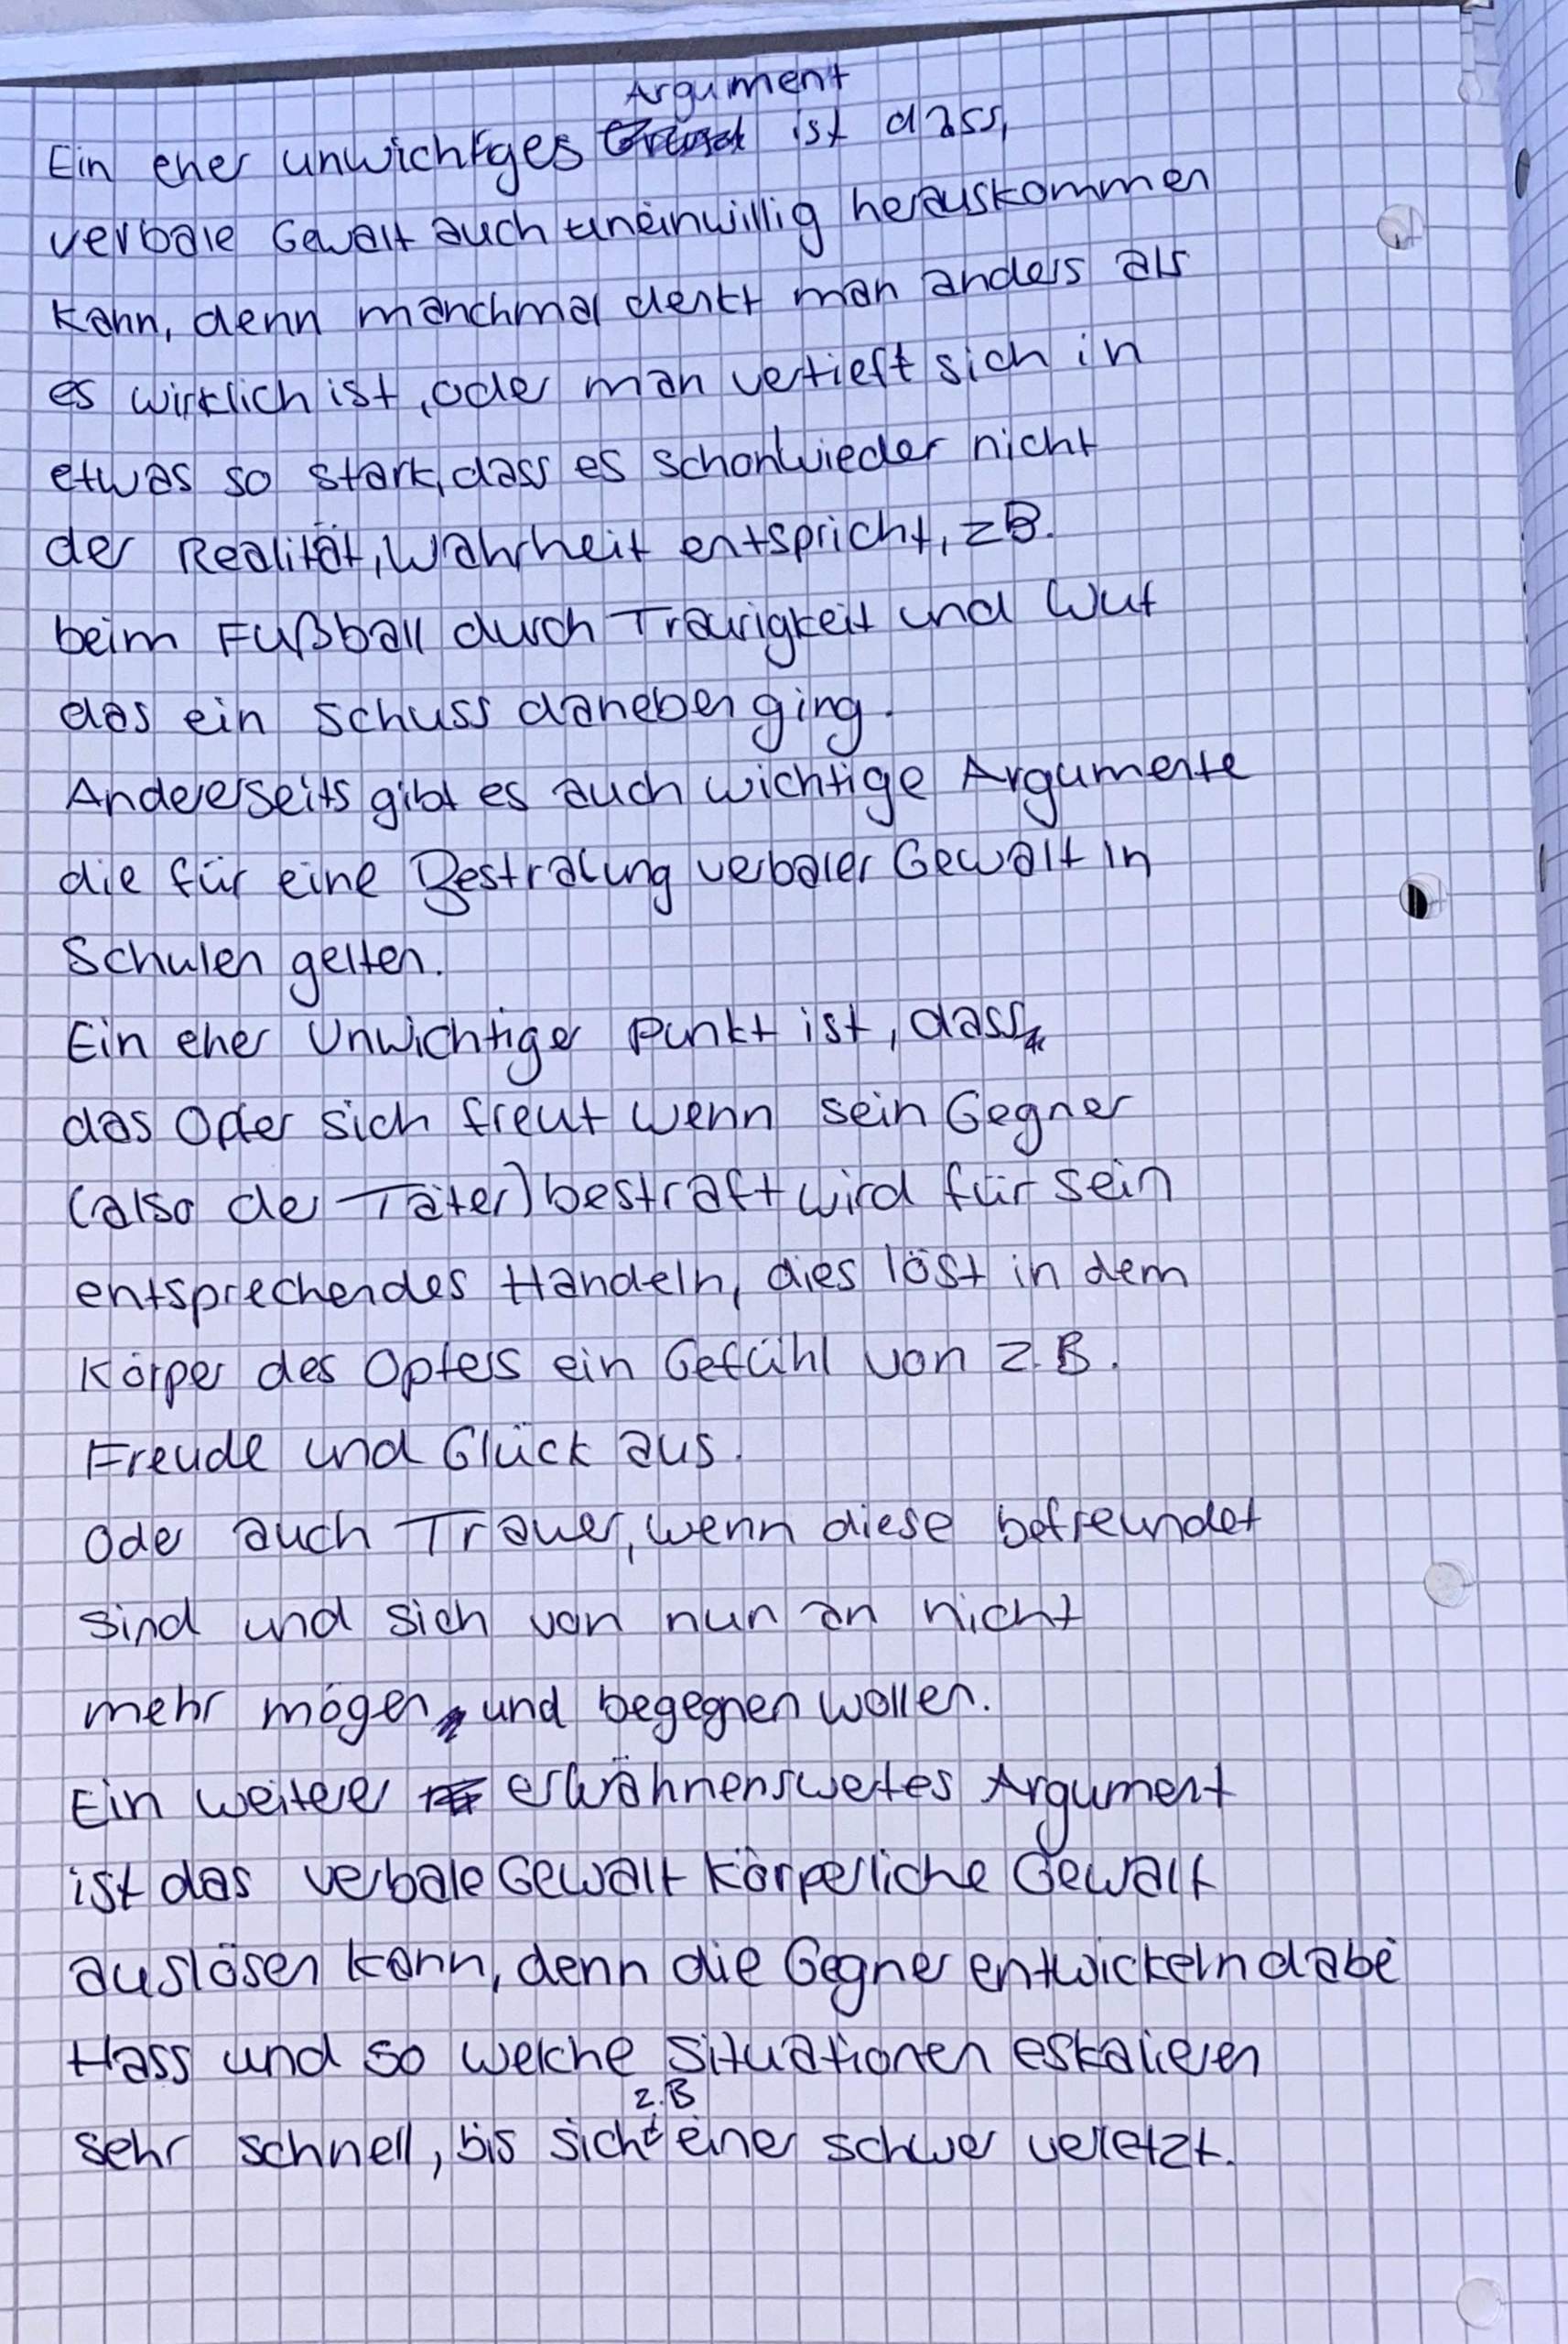 Argument
Ein eher unwichtiges Grund ist dass,
verbale Gewalt auch uneinwillig herauskommen
kann, denn manchmal denkt man anders als
es wirklich ist, oder man vertieft sich in
etwas so stark, dass es schonwieder nicht
der Realität, Wahrheit entspricht, zB.
beim Fußball durch Traurigkeit und Wut
das ein Schuss daneben ging.
Andererseits gibt es auch wichtige Argumente
die für eine Bestrafung verbaler Gewalt in
Schulen gelten.
Ein eher Unwichtiger Punkt ist, dass
das Opfer sich freut wenn sein Gegner
(also der Täter) bestraft wird für sein
entsprechendes Handeln, dies löst in dem
Körper des Opfers ein Gefühl von z.B.
Freude und Glück aus.
Oder auch Trauer, wenn diese befreundet
sind und sich von nun an nicht
mehr mögen und begegnen wollen.
Ein weiterer erwähnenswertes Argument
ist das verbale Gewalt körperliche Gewalt
auslösen kann, denn die Gegner entwickeln dabei
Hass und so welche Situationen eskalieren
z.B
sehr schnell, bis sich einer schwer verletzt.